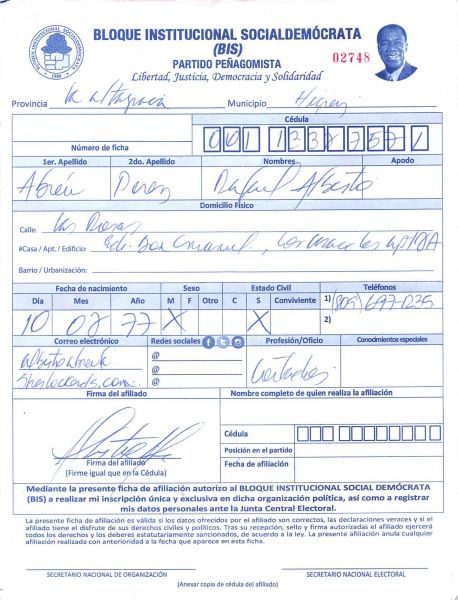 BLOQUE INSTITUCIONAL SOCIALDEMÓCRATA
(BIS)
PARTIDO PEÑAGOMISTA
02748
Libertad, Justicia, Democracia y Solidaridad
BLOQUE INSTITUCIONAL SOCIALDEMOCRATA
Provincia La altagracia Municipio Higüey
Cédula
Número de ficha 001 1338757 1
1er. Apellido 2do. Apellido Nombres Apodo
Abreu Perez Rafael Alberto
Domicilio Físico
Calle: Las Rosas
#Casa / Apt. / Edificio: Edi. Don Manuel, Los
Barrio / Urbanización:
Fecha de nacimiento Sexo Estado Civil Teléfonos
Día Mes Año M F Otro C S Conviviente 1) (805) 697-1235
10 02 77 X X 2)
Correo electrónico Redes sociales Profesión/Oficio Conocimientos especiales
@
@
@
Firma del afiliado Nombre completo de quien realiza la afiliación
Cédula
Posición en el partido
Fecha de afiliación
Firma del afiliado
(Firme igual que en la Cédula)
Mediante la presente ficha de afiliación autorizo al BLOQUE INSTITUCIONAL SOCIAL DEMÓCRATA
(BIS) a realizar mi inscripción única y exclusiva en dicha organización política, así como a registrar
mis datos personales ante la Junta Central Electoral.
La presente ficha de afiliación es válida si los datos ofrecidos por el afiliado son correctos, las declaraciones veraces y si el
afiliado tiene el disfrute de sus derechos civiles y políticos. Tras su recepción, sello y firma autorizadas el afiliado ejercerá
todos los derechos y los deberes estatutariamente sancionados, de acuerdo a la ley. La presente afiliación anula cualquier
afiliación realizada con anterioridad a la fecha que aparece en esta ficha.
SECRETARIO NACIONAL DE ORGANIZACIÓN SECRETARIO NACIONAL ELECTORAL
(Anexar copia de cédula del afiliado)